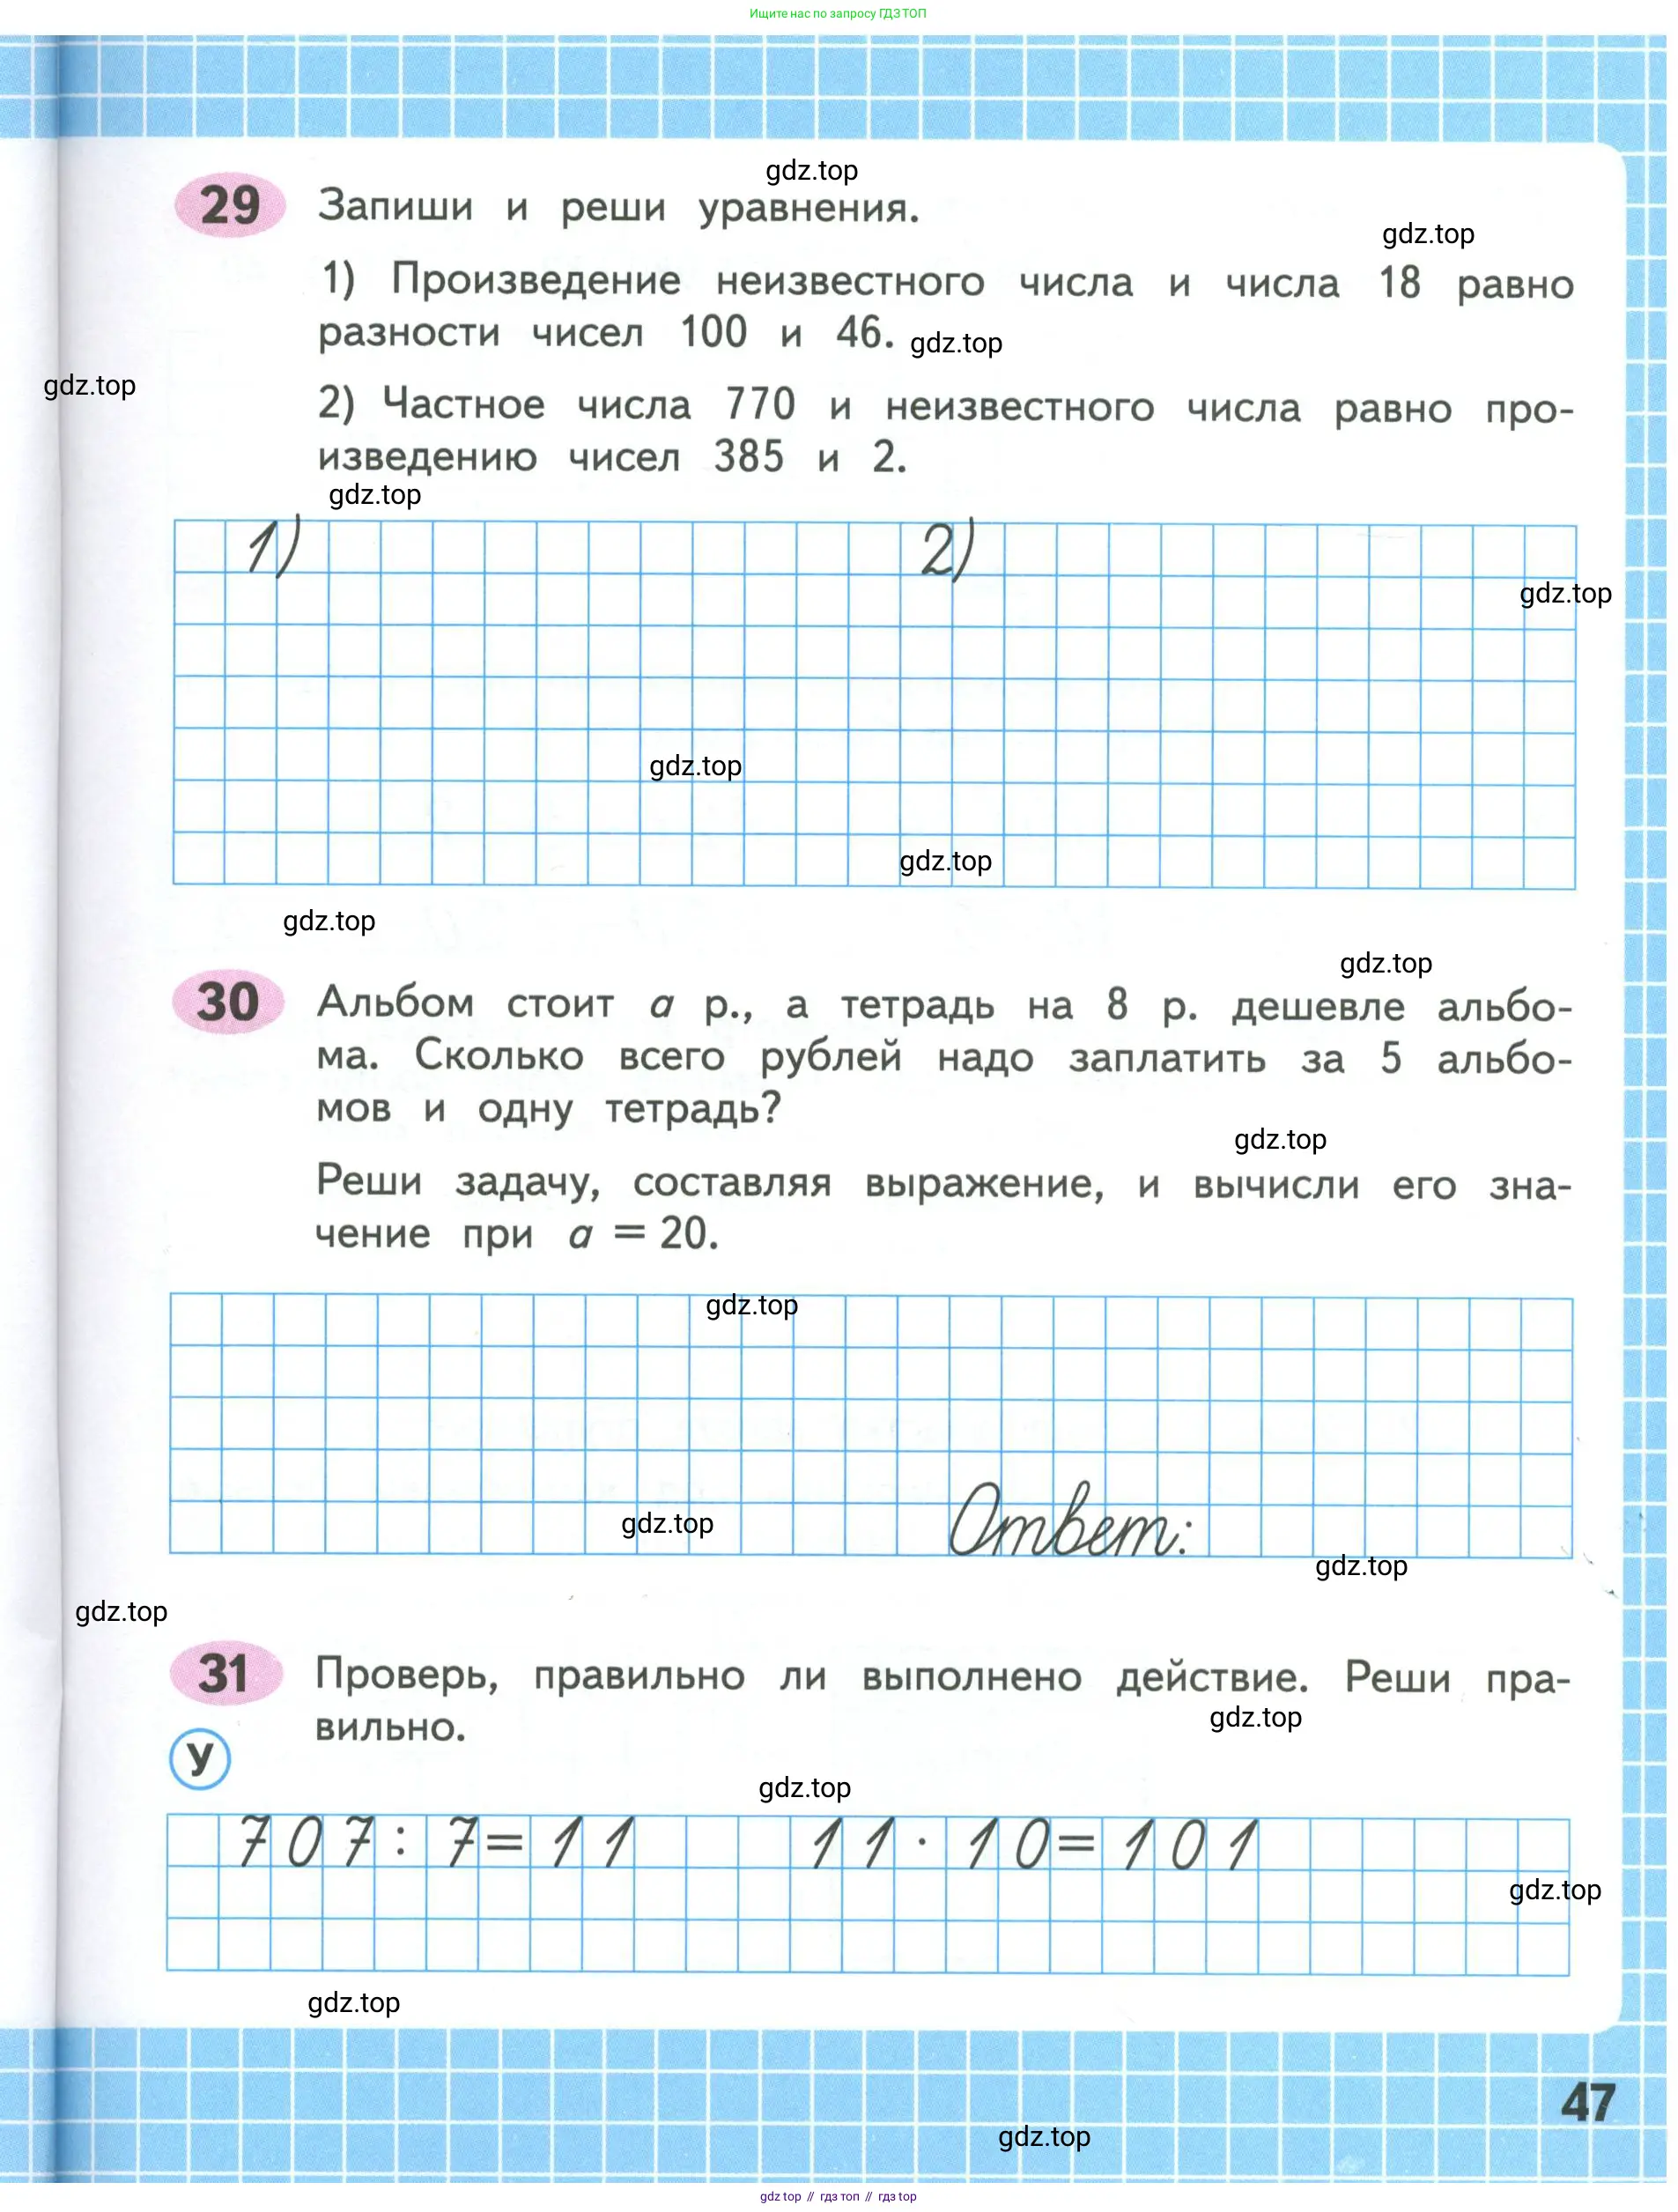 Ищите нас по запросу ГДЗ ТОП
gdz.top
29 Запиши и реши уравнения.
gdz.top
1) Произведение неизвестного числа и числа 18 равно
разности чисел 100 и 46. gdz.top
gdz.top
2) Частное числа 770 и неизвестного числа равно про-
изведению чисел 385 и 2.
gdz.top
1) 2)
gdz.top
gdz.top
gdz.top
gdz.top
gdz.top
30 Альбом стоит a р., а тетрадь на 8 р. дешевле альбо-
ма. Сколько всего рублей надо заплатить за 5 альбо-
мов и одну тетрадь?
gdz.top
Реши задачу, составляя выражение, и вычисли его зна-
чение при a = 20.
gdz.top
gdz.top Ответ:
gdz.top
gdz.top
31 Проверь, правильно ли выполнено действие. Реши пра-
вильно.
gdz.top
У
gdz.top
707 : 7 = 11 11 · 10 = 101
gdz.top
gdz.top
47
gdz.top
gdz top // гдз топ // гдз top